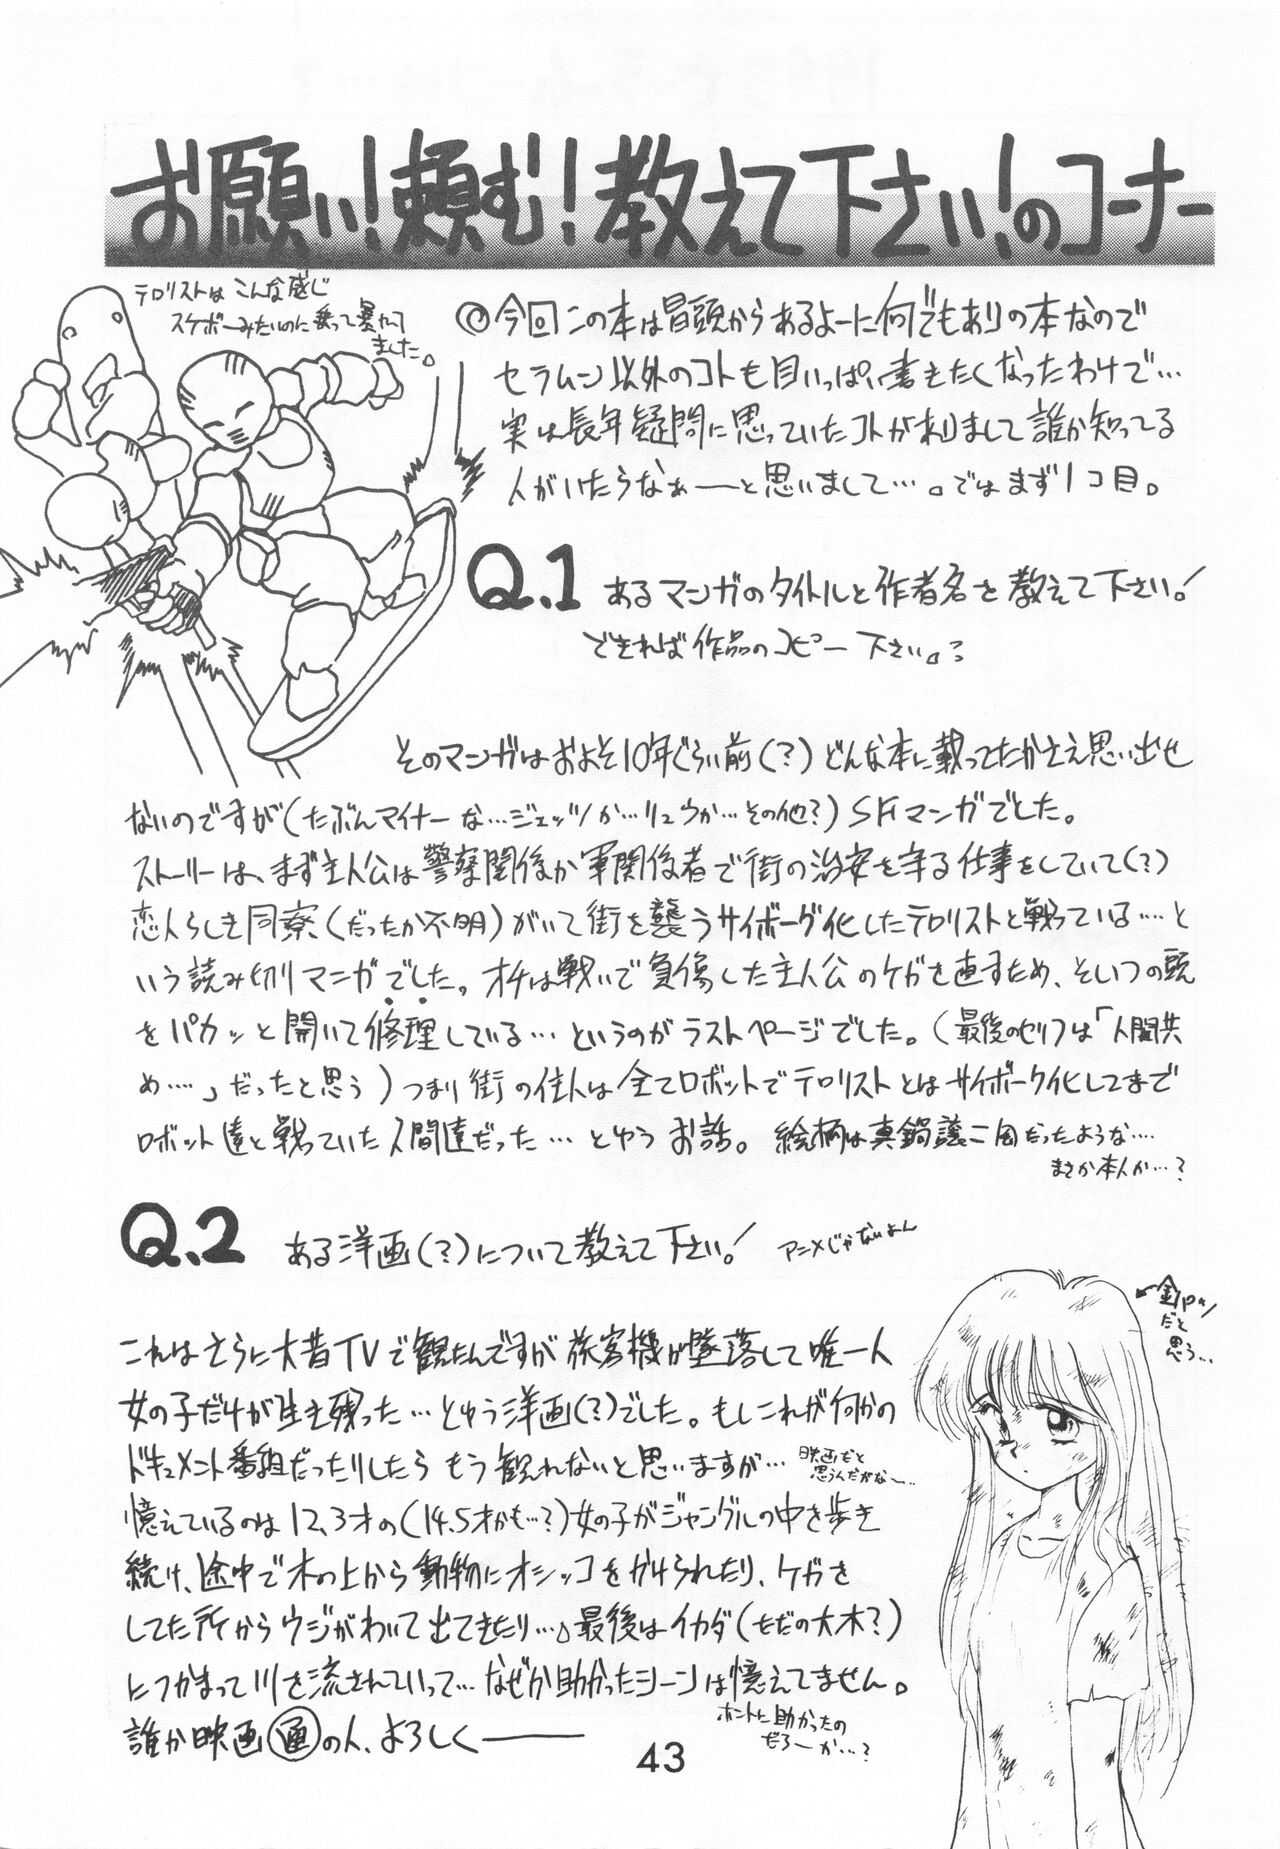 お願い!頼む!教えて下さい!のコーナー
テロリストはこんな感じ
スケボーみたいのに乗って暴れて
ました。
◎今回この本は冒頭からあるよーに何でもありの本なので
セラムン以外のコトも目いっぱい書きたくなったわけで…
実は長年疑問に思っていたコトがありまして誰か知ってる
人がいたらなぁ──と思いまして…。ではまず1コ目。
Q.1 あるマンガのタイトルと作者名を教えて下さい!
できれば作品のコピー下さい。?
そのマンガはおよそ10年ぐらい前(?)どんな本に載ってたかさえ思い出せ
ないのですが(たぶんマイナーな…ジェッツか…リュウか…その他?)SFマンガでした。
ストーリーは、まず主人公は警察関係か軍関係者で街の治安を守る仕事をしていて(?)
恋人らしき同寮(だったか不明)がいて街を襲うサイボーグ化したテロリストと戦っている…と
いう読み切りマンガでした。オチは戦いで負傷した主人公のケガを直すため、そいつの頭
をパカッと開いて修理している…というのがラストページでした。(最後のセリフは「人間共
め…。」だったと思う)つまり街の住人は全てロボットでテロリストとはサイボーグ化してまで
ロボット達と戦っていた人間達だった…とゆうお話。絵柄は真鍋譲二風だったような…
まさか本人か…?
Q.2 ある洋画(?)について教えて下さい! アニメじゃないよん
これはさらに大昔TVで観たんですが旅客機が墜落して唯一人
女の子だけが生き残った…とゆう洋画(?)でした。もしこれが何かの
ドキュメント番組だったりしたらもう観れないと思いますが…
映画だと
思うんだがな〜…
憶えているのは12,3才の(14.5才かも…?)女の子がジャングルの中を歩き
続け、途中で木の上から動物にオシッコをかけられたり、ケガを
してた所からウジがわいて出てきたり…。最後はイカダ(ただの大木?)
につかまって川を流されていって…なぜか助かったシーンは憶えてません。
ホントに助かったの
だろーか…?
誰か映画通の人、よろしく────
金パツ
だと
思う…
43